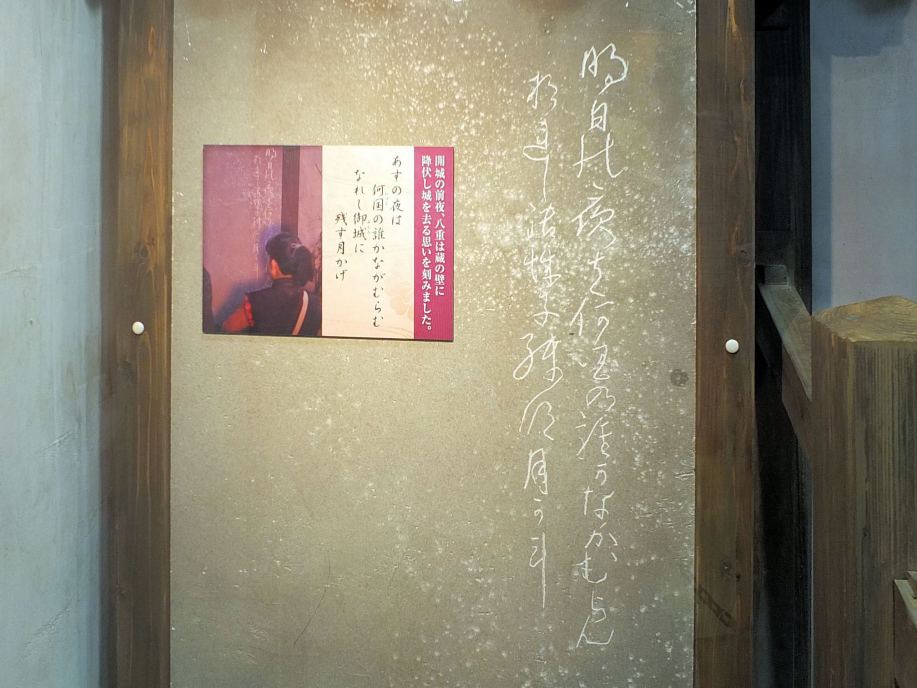 明日の夜は何国の誰かなかむらん
なれし御城に残す月かけ
開城の前夜、八重は蔵の壁に
降伏し城を去る思いを刻みました。
あすの夜は
何国の誰かながむらむ
なれし御城に
残す月かげ